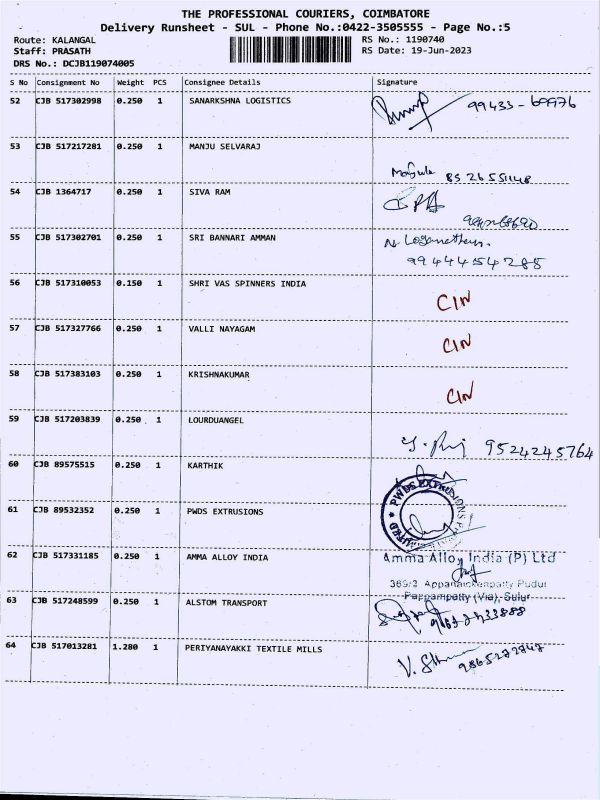 THE PROFESSIONAL COURIERS, COIMBATORE
Delivery Runsheet - SUL - Phone No.:0422-3505555 - Page No.:5
Route: KALANGAL RS No.: 1190740
Staff: PRASATH RS Date: 19-Jun-2023
DRS No.: DCJB119074005
S No Consignment No Weight PCS Consignee Details Signature
52 CJB 517302998 0.250 1 SANARKSHNA LOGISTICS 99433-69976
53 CJB 517217281 0.250 1 MANJU SELVARAJ
Manjula 8526551148
54 CJB 1364717 0.250 1 SIVA RAM
55 CJB 517302701 0.250 1 SRI BANNARI AMMAN N. Loganathan.
9944454285
56 CJB 517310053 0.150 1 SHRI VAS SPINNERS INDIA CIN
57 CJB 517327766 0.250 1 VALLI NAYAGAM CIN
58 CJB 517383103 0.250 1 KRISHNAKUMAR CIN
59 CJB 517203839 0.250 1 LOURDUANGEL
9524245764
60 CJB 89575515 0.250 1 KARTHIK
61 CJB 89532352 0.250 1 PWDS EXTRUSIONS PWDS EXTRUSIONS
62 CJB 517331185 0.250 1 AMMA ALLOY INDIA Amma Alloy India (P) Ltd
369/2 Appanaickenpatty Pudur
Pappampatty (Via), Sulur
63 CJB 517248599 0.250 1 ALSTOM TRANSPORT
64 CJB 517013281 1.280 1 PERIYANAYAKKI TEXTILE MILLS 9865272747